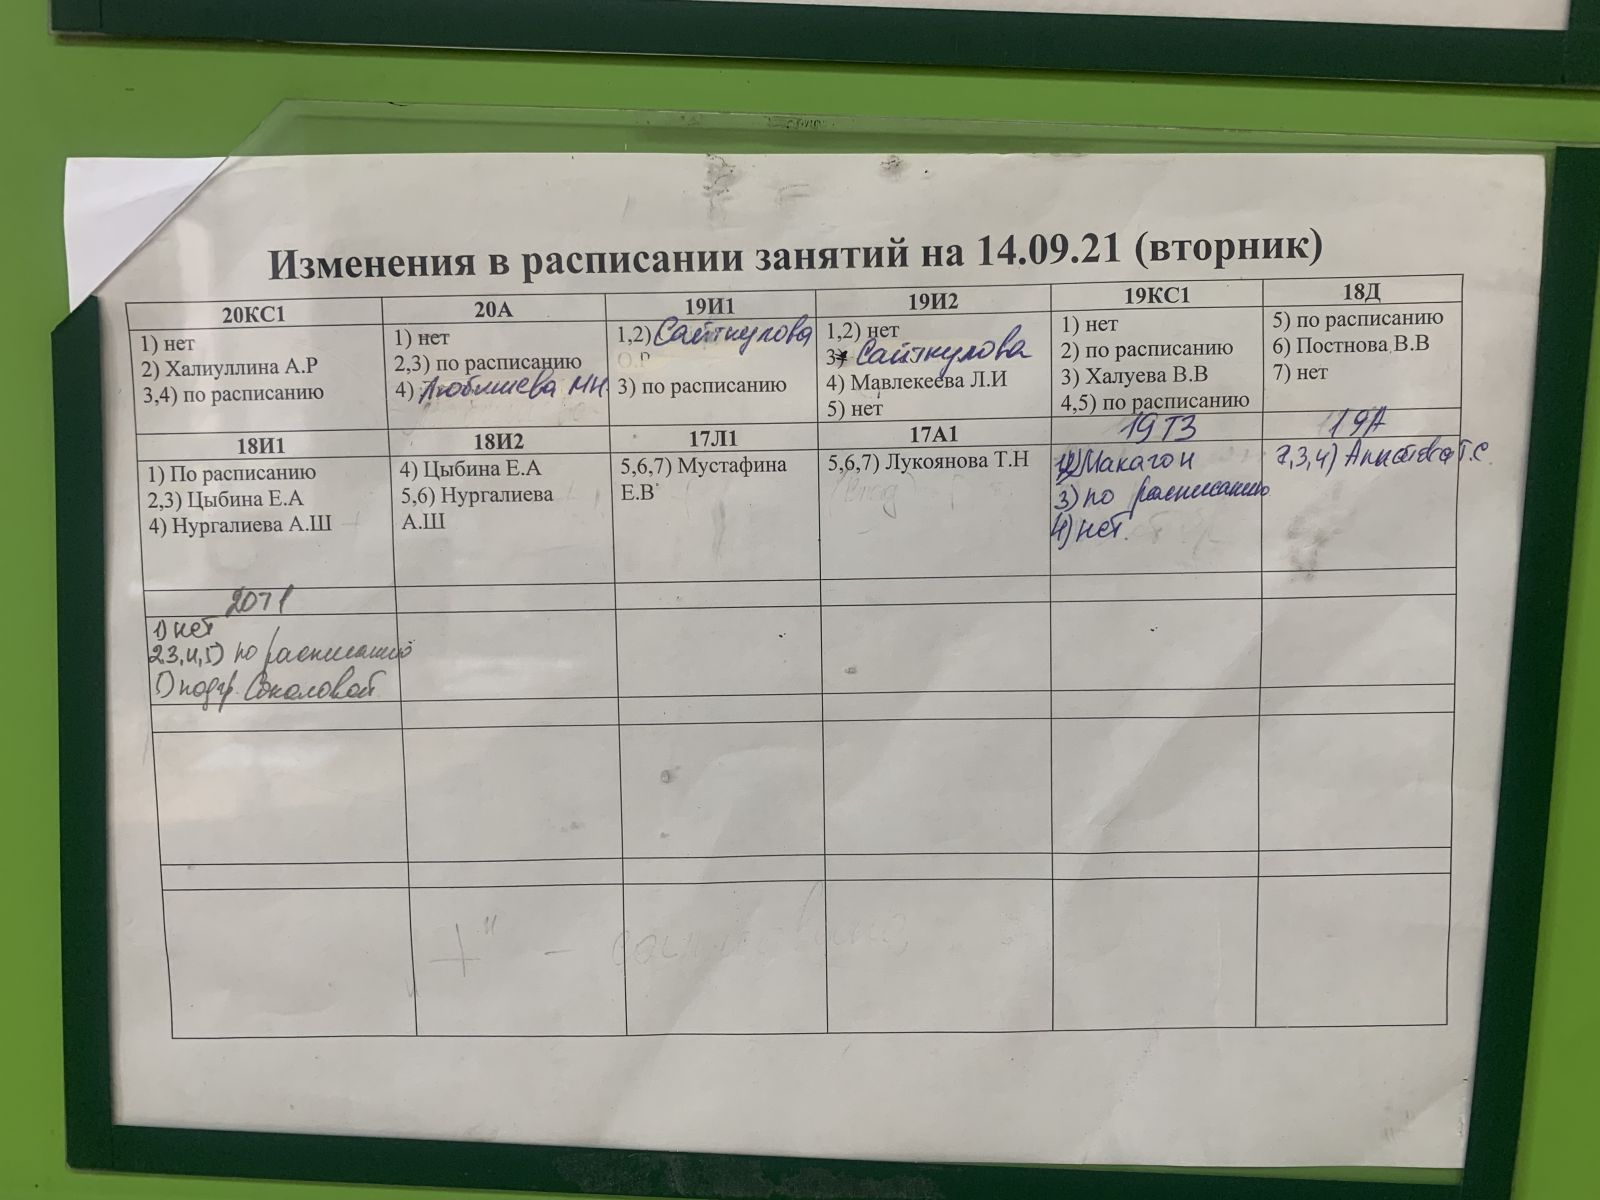 Изменения в расписании занятий на 14.09.21 (вторник)
20КС1
1) нет
2) Халиуллина А.Р
3,4) по расписанию
20А
1) нет
2,3) по расписанию
4)
19И1
1,2) Сайткулова
О.Р
3) по расписанию
19И2
1,2) нет
3) Сайткулова
4) Мавлекеева Л.И
5) нет
19КС1
1) нет
2) по расписанию
3) Халуева В.В
4,5) по расписанию
18Д
5) по расписанию
6) Постнова В.В
7) нет
18И1
1) По расписанию
2,3) Цыбина Е.А
4) Нургалиева А.Ш
18И2
4) Цыбина Е.А
5,6) Нургалиева
А.Ш
17Л1
5,6,7) Мустафина
Е.В
17А1
5,6,7) Лукоянова Т.Н
19ТЗ
Макагон
3) по расписанию
4) нет.
19А
2,3,4)
20Т1
1) нет
2,3,4,5) по расписанию
1) подгр. Соколовой